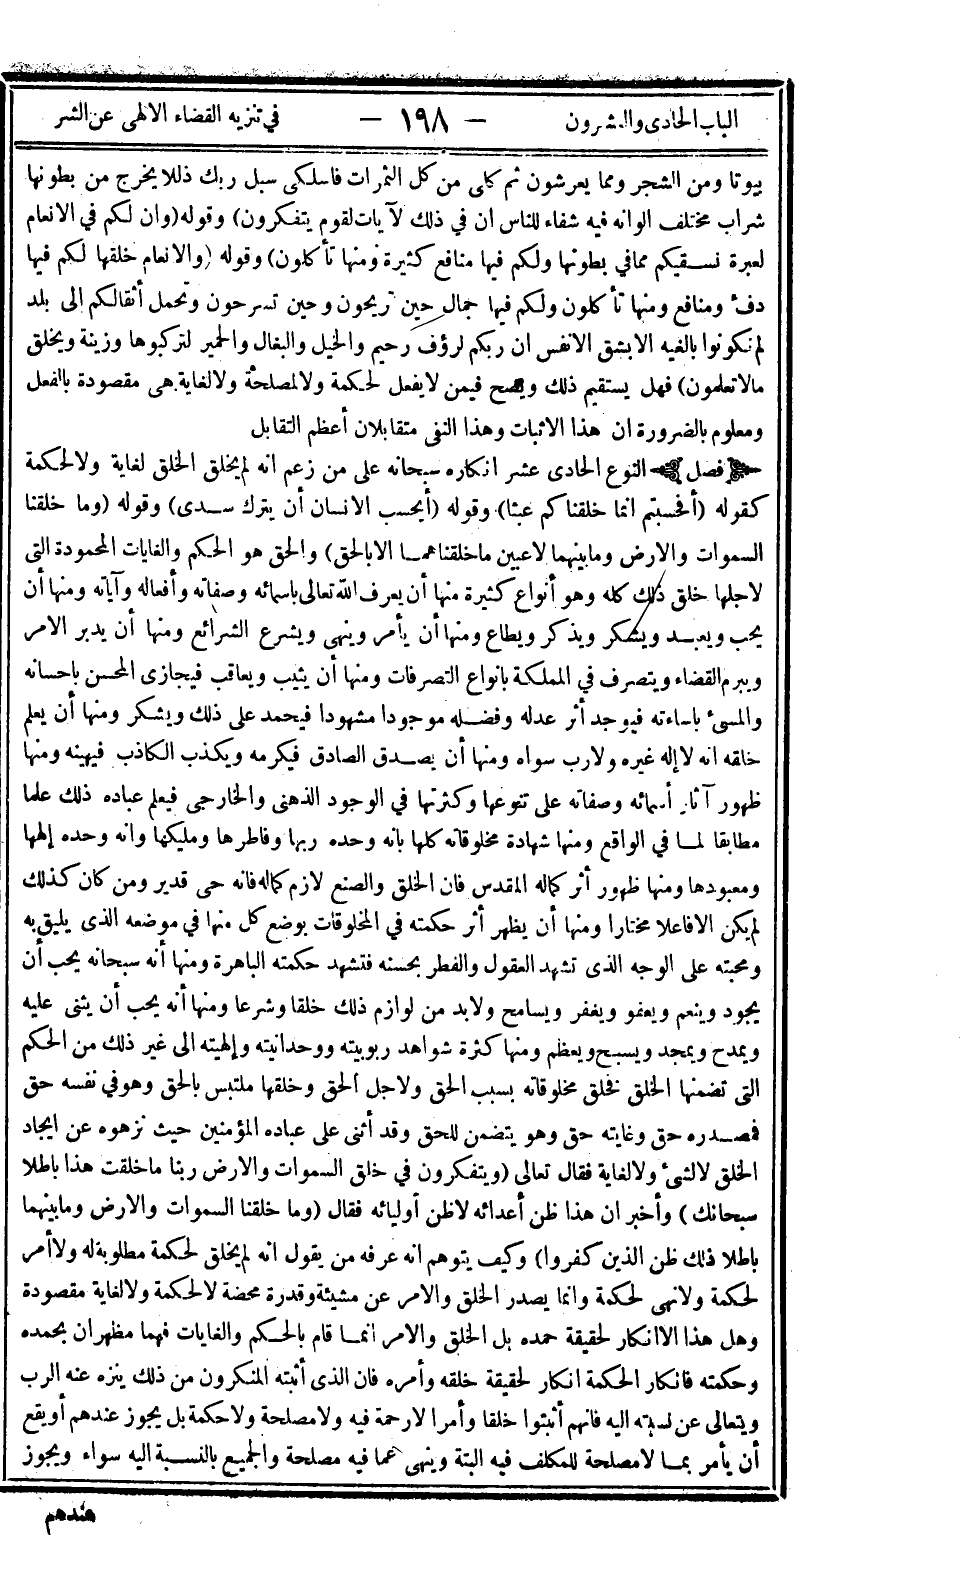 الباب الحادى والعشرون — ١٩٨ — في تنزيه القضاء الالهى عن الشر
بيوتا ومن الشجر ومما يعرشون ثم كلى من كل الثمرات فاسلكى سبل ربك ذللا يخرج من بطونها
شراب مختلف الوانه فيه شفاء للناس ان في ذلك لآيات لقوم يتفكرون) وقوله (وان لكم في الانعام
لعبرة نسقيكم ممافي بطونها ولكم فيها منافع كثيرة ومنها تأكلون) وقوله (والانعام خلقها لكم فيها
دفء ومنافع ومنها تأكلون ولكم فيها جمال حين تريحون وحين تسرحون وتحمل أثقالكم الى بلد
لم تكونوا بالغيه الابشق الانفس ان ربكم لرؤف رحيم والخيل والبغال والحمير لتركبوها وزينة ويخلق
مالاتعلمون) فهل يستقيم ذلك ويصح فيمن لايفعل لحكمة ولالمصلحة ولالغاية هى مقصودة بالفعل
ومعلوم بالضرورة ان هذا الاثبات وهذا النفى متقابلان أعظم التقابل
﴿فصل﴾ النوع الحادى عشر انكاره سبحانه على من زعم انه لم يخلق الخلق لغاية ولالحكمة
كقوله (أفحسبتم انما خلقناكم عبثا) وقوله (أيحسب الانسان أن يترك سدى) وقوله (وما خلقنا
السموات والارض ومابينهما لاعبين ماخلقناهمـا الابالحق) والحق هو الحكم والغايات المحمودة التى
لاجلها خلق ذلك كله وهو أنواع كثيرة منها أن يعرف الله تعالى باسمائه وصفاته وأفعاله وآياته ومنها أن
يحب ويعبد ويشكر ويذكر ويطاع ومنها أن يأمر وينهى ويشرع الشرائع ومنها أن يدبر الامر
ويبرم القضاء ويتصرف في المملكة بانواع التصرفات ومنها أن يثيب ويعاقب فيجازى المحسن باحسانه
والمسئ باساءته فيوجد أثر عدله وفضله موجودا مشهودا فيحمد على ذلك ويشكر ومنها أن يعلم
خلقه انه لاإله غيره ولارب سواه ومنها أن يصدق الصادق فيكرمه ويكذب الكاذب فيهينه ومنها
ظهور آثار أسمائه وصفاته على تنوعها وكثرتها في الوجود الذهنى والخارجى فيعلم عباده ذلك علما
مطابقا لمـا في الواقع ومنها شهادة مخلوقاته كلها بانه وحده ربها وفاطرها ومليكها وانه وحده إلهها
ومعبودها ومنها ظهور أثر كماله المقدس فان الخلق والصنع لازم كماله فانه حى قدير ومن كان كذلك
لم يكن الافاعلا مختارا ومنها أن يظهر أثر حكمته في المخلوقات بوضع كل منها في موضعه الذى يليق به
ومحبته على الوجه الذى تشهد العقول والفطر بحسنه فتشهد حكمته الباهرة ومنها أنه سبحانه يحب أن
يجود وينعم ويعفو ويغفر ويسامح ولابد من لوازم ذلك خلقا وشرعا ومنها أنه يحب أن يثنى عليه
ويمدح ويمجد ويسبح ويعظم ومنها كثرة شواهد ربوبيته ووحدانيته وإلهيته الى غير ذلك من الحكم
التى تضمنها الخلق فخلق مخلوقاته بسبب الحق ولاجل الحق وخلقها ملتبس بالحق وهوفي نفسه حق
فمصدره حق وغايته حق وهو يتضمن للحق وقد أثنى على عباده المؤمنين حيث نزهوه عن ايجاد
الخلق لالشئ ولالغاية فقال تعالى (ويتفكرون في خلق السموات والارض ربنا ماخلقت هذا باطلا
سبحانك) وأخبر ان هذا ظن أعدائه لاظن أوليائه فقال (وما خلقنا السموات والارض ومابينهما
باطلا ذلك ظن الذين كفروا) وكيف يتوهم انه عرفه من يقول انه لم يخلق لحكمة مطلوبة له ولاأمر
لحكمة ولانهى لحكمة وانما يصدر الخلق والامر عن مشيئة وقدرة محضة لالحكمة ولالغاية مقصودة
وهل هذا الاانكار لحقيقة حمده بل الخلق والامر انمـا قام بالحكم والغايات فهما مظهران بحمده
وحكمته فانكار الحكمة انكار لحقيقة خلقه وأمره فان الذى أثبته المنكرون من ذلك ينزه عنه الرب
ويتعالى عن نسبته اليه فانهم أثبتوا خلقا وأمرا لارحمة فيه ولامصلحة ولاحكمة بل يجوز عندهم أويقع
أن يأمر بمـا لامصلحة للمكلف فيه البتة وينهى عما فيه مصلحة والجميع بالنسبة اليه سواء ويجوز
عندهم